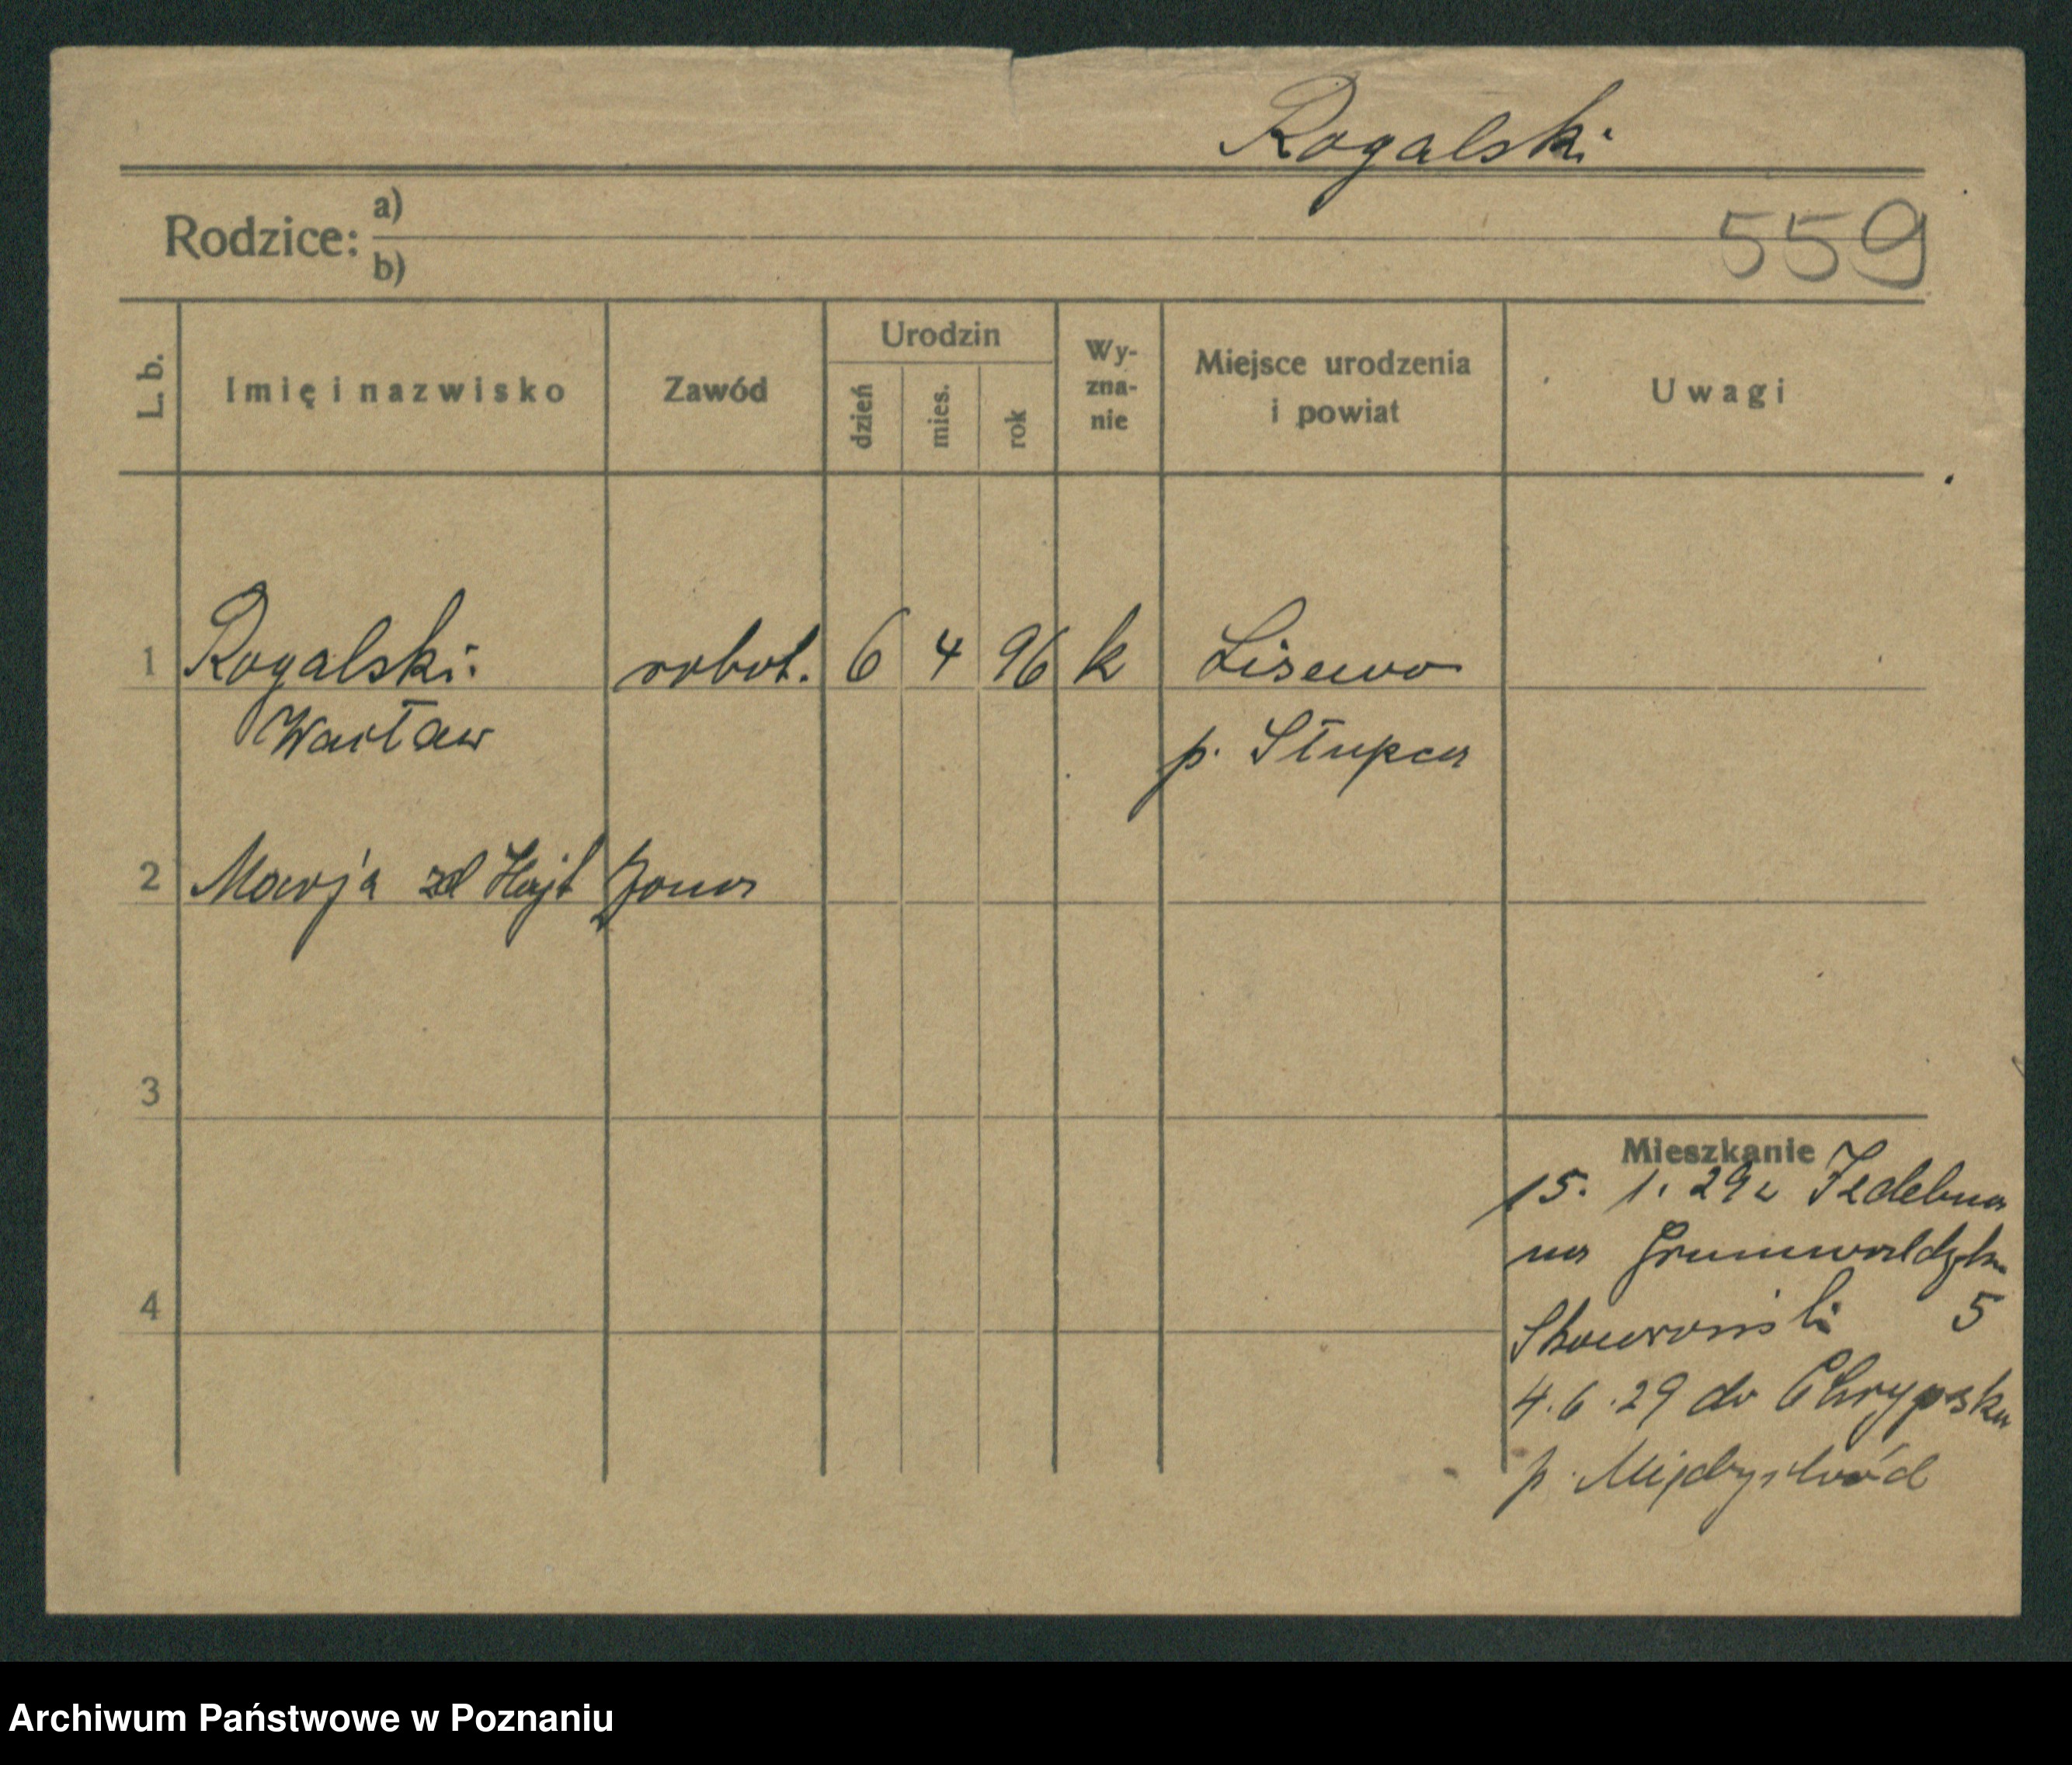 Rogalski
Rodzice: a)
b)
559
L. b.
Imię i nazwisko
Zawód
Urodzin
dzień
mies.
rok
Wy-
zna-
nie
Miejsce urodzenia
i powiat
Uwagi
1 Rogalski robot. 6 4 96 k Lisewo
Wacław p. Słupca
2 Marja zd Hajt żona
3
4
Mieszkanie
15. 1. 29 z Izdebna
na Grunwaldzka
Skowroński 5
4.6.29 do Chrypska
p. Międzychód
Archiwum Państwowe w Poznaniu